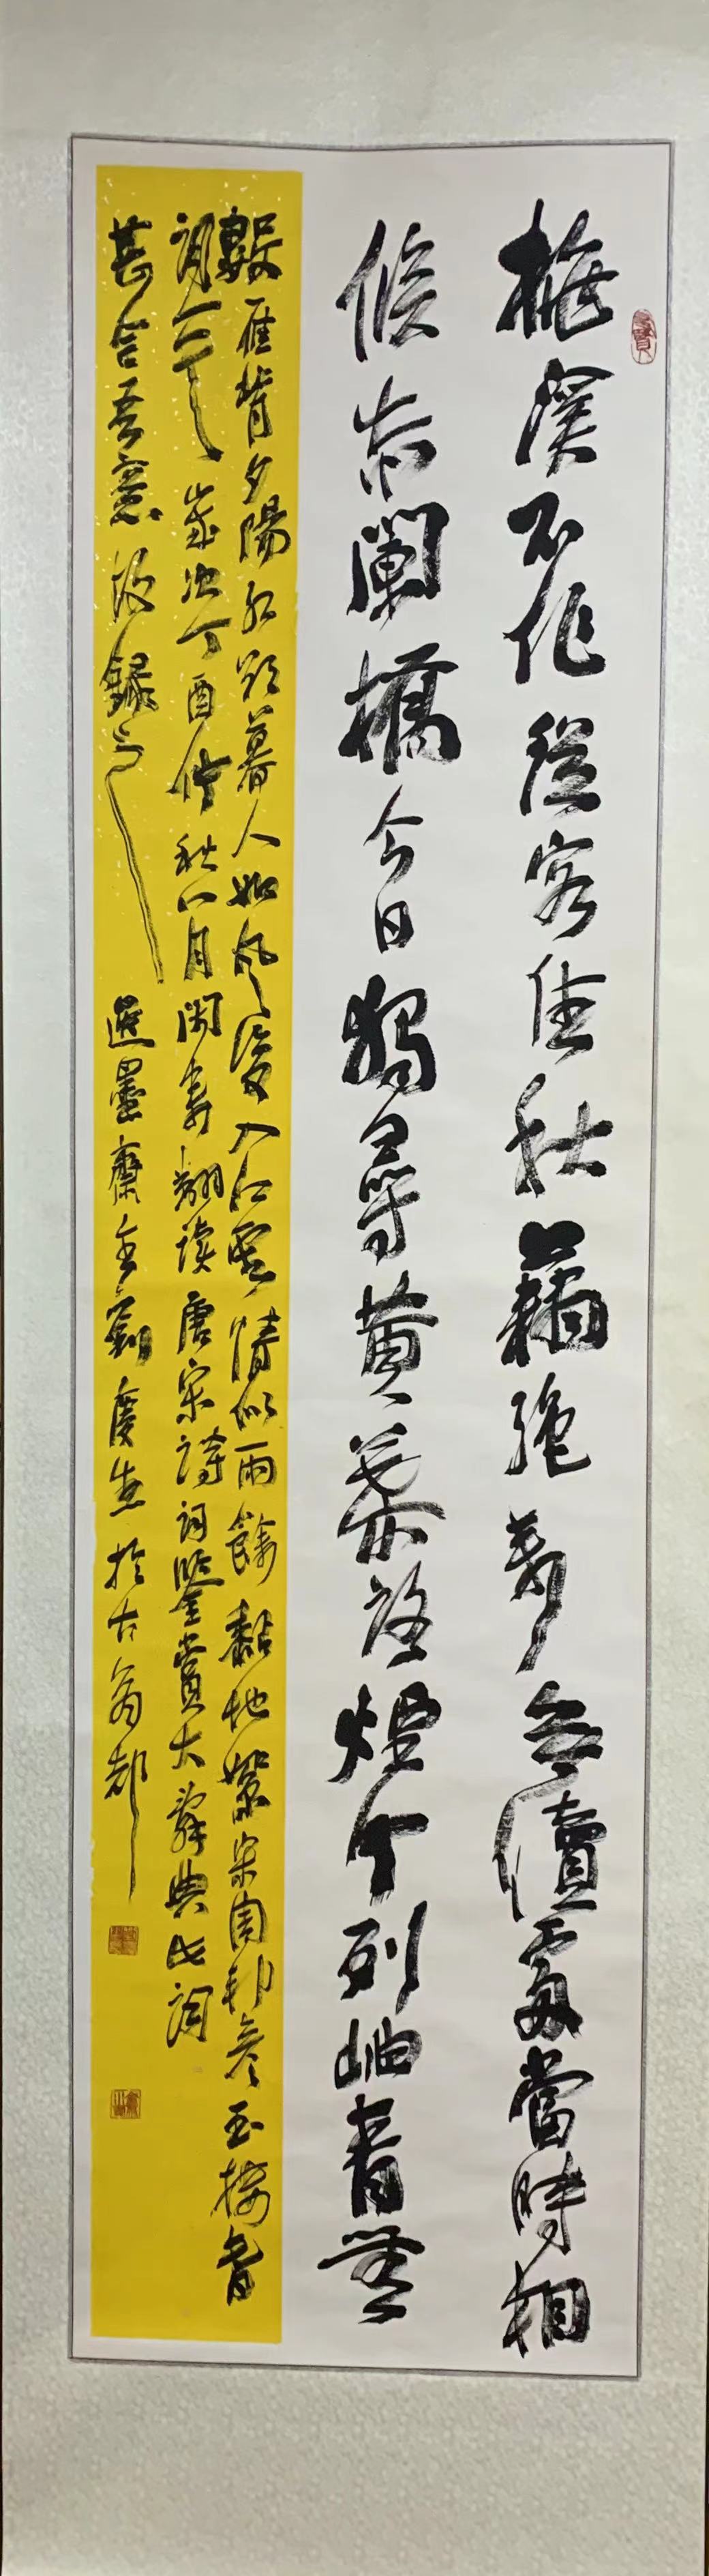 桃溪不作從容住秋藕絕來無續處當時相
候赤闌橋今日獨尋黃葉路煙中列岫青無
數雁背夕陽紅欲暮人如風後入江雲情似雨餘黏地絮宋周邦彥玉樓春
詞一首歲次丁酉仲秋八月閑翻读唐宋詩詞鑒賞大辭典此詞
甚合吾意故錄之逸墨齋主劉慶生於古商都